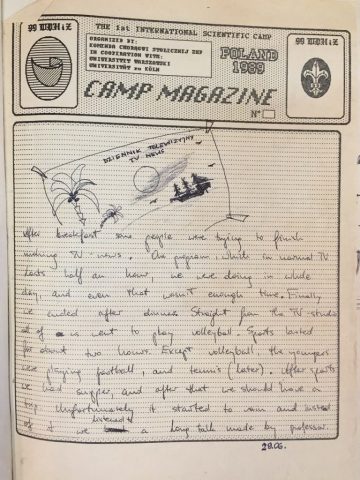 99 WDH i Z
THE 1st INTERNATIONAL SCIENTIFIC CAMP
99 WDH i Z
ORGANIZED BY:
KOMENDA CHORĄGWI STOŁECZNEJ ZHP
IN COOPERATION WITH:
UNIWERSYTET WARSZAWSKI
UNIVERSITÄT zu KÖLN
POLAND
1989
CAMP MAGAZINE
N°
DZIENNIK TELEWIZYJNY
TV NEWS
After breakfast some people were trying to finish
making TV-news. One program, which in normal TV
lasts half an hour, we were doing in whole
day, and even that wasn't enough time. Finally
we ended after dinner. Straight from the TV-studio
all of us went to play volleyball. Sports lasted
for about two hours. Except volleyball, the youngers
were playing football, and tennis (later). After sports
we had supper, and after that we should have a
trip. Unfortunately it started to rain and instead
of it we listened to a long talk made by professor.
29.06.